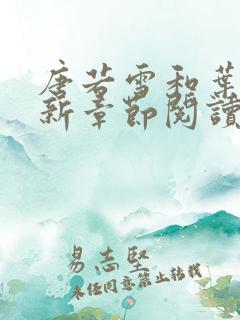 唐若雪和葉
新章節閱讀
易志堅
未經同意禁止转载